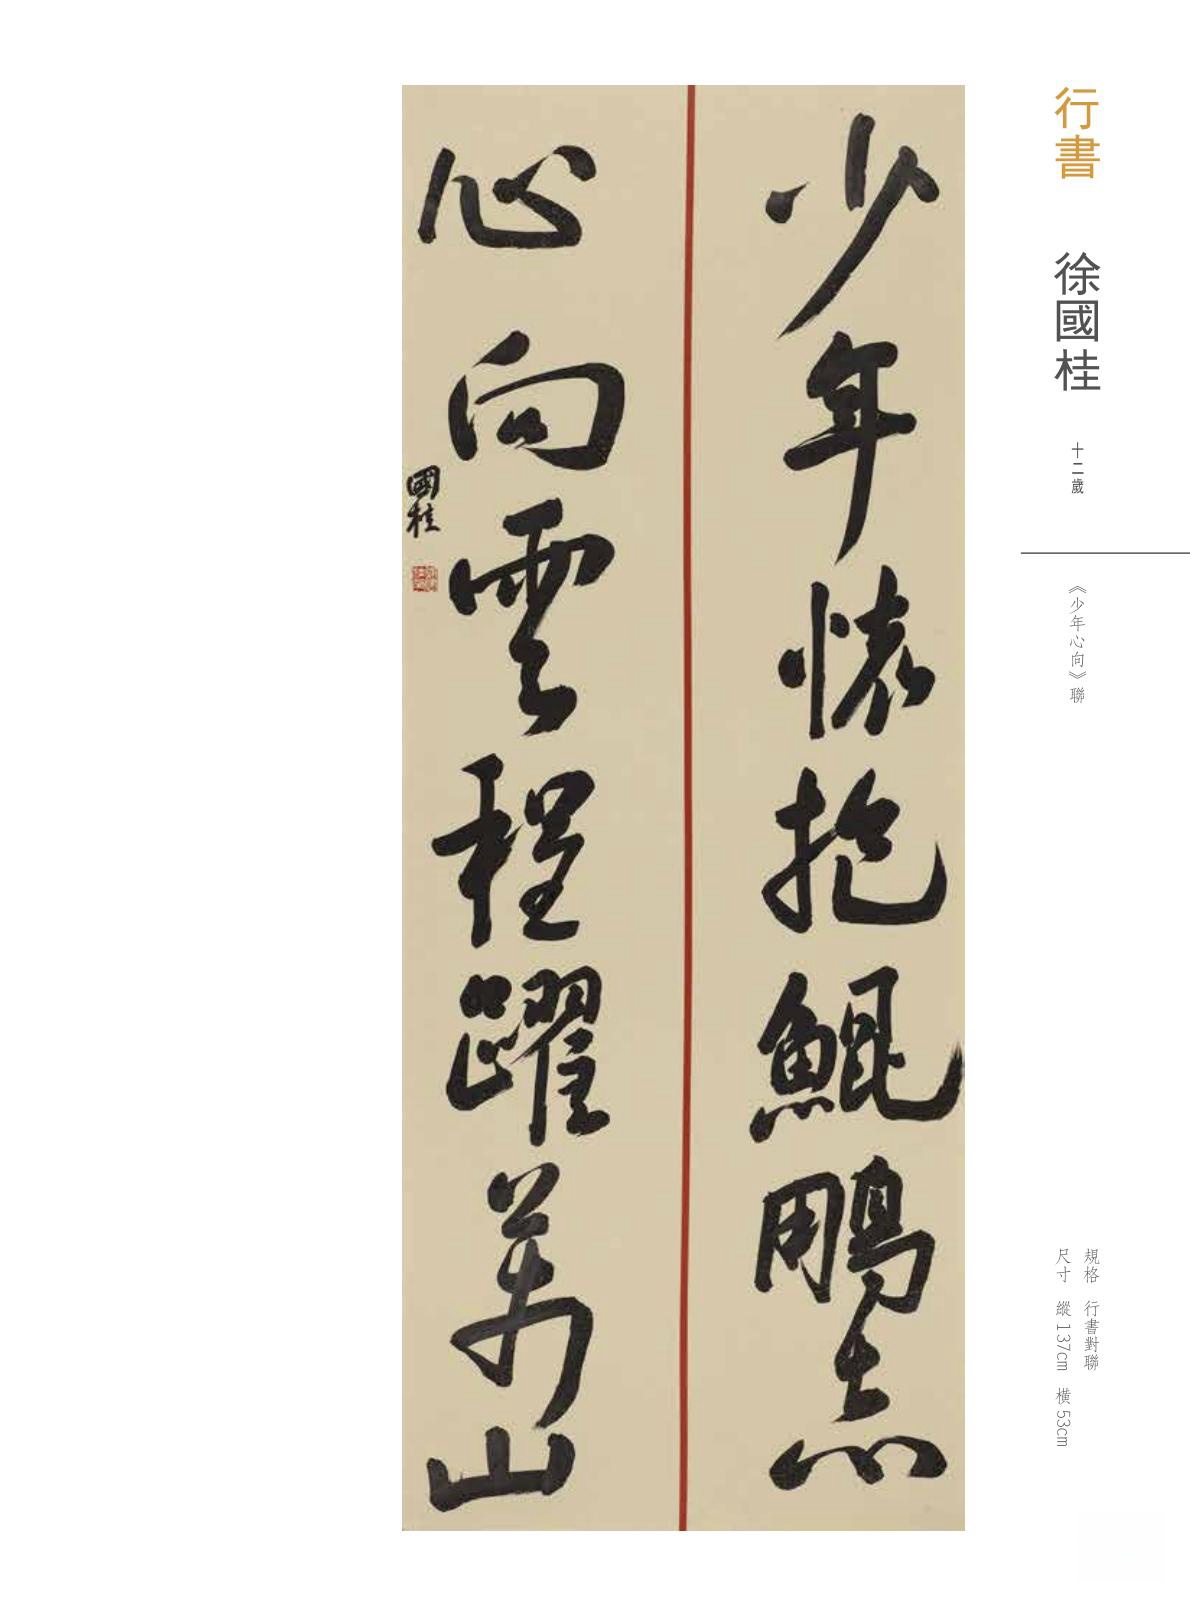 行書
徐國桂
十二歲
《少年心向》聯
規格 行書對聯
尺寸 縱137cm 橫53cm
少年懷抱鯤鵬志
心向雲程躍萬山
國桂